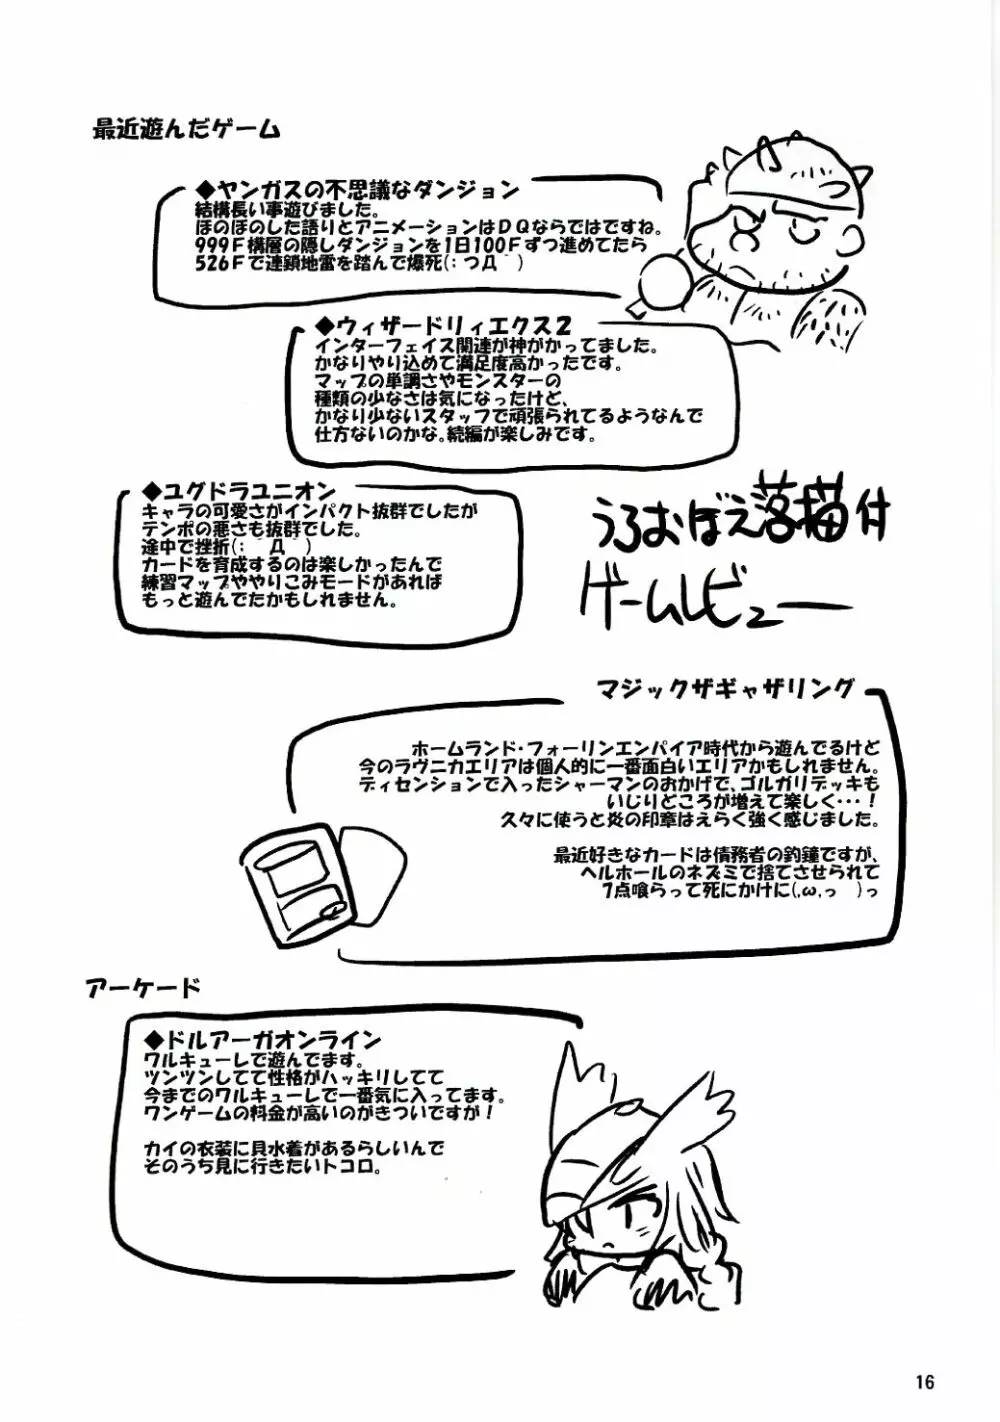 最近遊んだゲーム
◆ヤンガスの不思議なダンジョン
結構長い事遊びました。
ほのぼのした語りとアニメーションはDQならではですね。
999F構層の隠しダンジョンを1日100Fずつ進めてたら
526Fで連鎖地雷を踏んで爆死(;つД`)
◆ウィザードリィエクス2
インターフェイス関連が神がかってました。
かなりやり込めて満足度高かったです。
マップの単調さやモンスターの
種類の少なさは気になったけど、
かなり少ないスタッフで頑張られてるようなんで
仕方ないのかな。続編が楽しみです。
◆ユグドラユニオン
キャラの可愛さがインパクト抜群でしたが
テンポの悪さも抜群でした。
途中で挫折(;´Д`)
カードを育成するのは楽しかったんで
練習マップややりこみモードがあれば
もっと遊んでたかもしれません。
うろおぼえ落描付
ゲームレビュー
マジックザギャザリング
ホームランド・フォーリンエンパイア時代から遊んでるけど
今のラヴニカエリアは個人的に一番面白いエリアかもしれません。
ディセンションで入ったシャーマンのおかげで、ゴルガリデッキも
いじりどころが増えて楽しく・・・!
久々に使うと炎の印章はえらく強く感じました。
最近好きなカードは債務者の弔鐘ですが、
ヘルホールのネズミで捨てさせられて
7点喰らって死にかけに(,ω,っ )っ
アーケード
◆ドルアーガオンライン
ワルキューレで遊んでます。
ツンツンしてて性格がハッキリしてて
今までのワルキューレで一番気に入ってます。
ワンゲームの料金が高いのがきついですが!
カイの衣装に貝水着があるらしいんで
そのうち見に行きたいトコロ。
16